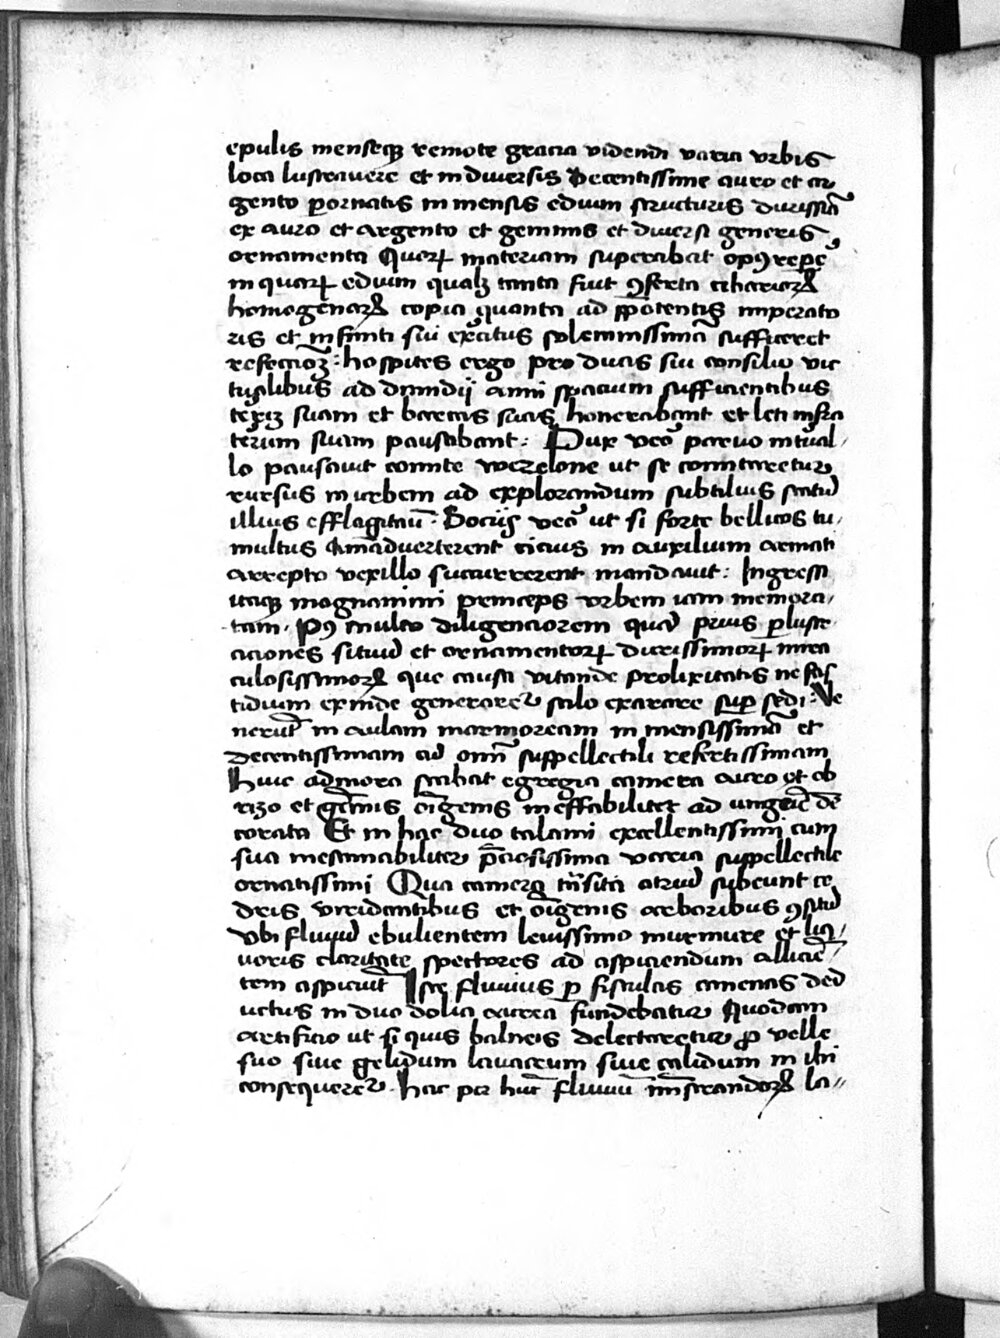 epulis menseqꝫ remote gracia videndi varia vrbis
loca lustravere et in diuersis decentissime auro et ar
gento ꝑornatis in mensis edium structuris durissīa
ex auro et argento et gemmis et diuersi generis
ornamenta Quorꝝ materiam superabat opꝰ
in quarꝝ edium qualꝫ tanta fuit ꝯferta cibariorꝝ
homogeniorꝝ copia quanta ad potentis imperato
ris et infiniti sui exc̄itus solemnissimā sufficeret
refectionē · hospites ergo pro ducis sui consilio vic
tualibus ad dimidij anni spacium sufficientibus
suam et honerabant et leti infra
terrium suam pausabant : Dux vero paruo interual
lo pausauit comite wezelone ut se comitaretur
rursus in urbem ad explorandum subtilius statū
illius efflagitans · Socijs vero ut si forte bellicos tu
multus aīaduerterent cicius in auxilium armati
arrepto vexillo succurrerent mandauit : Ingressi
itaqꝫ magnanimi princeps vrbem iam memora
tam · Pꝰ multo diligenciorem quā prius ꝑlustr
aciones situū et ornamentorꝝ diuersissimorꝝ mira
culosissimorꝝ que causa vitande prolixitatis ne fas
tidium exinde generaret᷑ stilo exarare suꝑsedi : Ve
nerūt in aulam marmoream inmensissimā et
decentissimam cū omī suppellectili refertissimam
Huic admota stabat egregia camera auro et ob
rizo et gēmis oīgenis ineffabiliter ad vnguē de
corata Et in hac duo talami excellentissimi cum
sua inestimabiliter p̄ciosissima varia suppellectile
ornatissimi Qua camera trāsita atriū subeunt ce
dris viridantibus et oīgenis arboribus ꝯsitū
Vbi fluuiū ebulientem leuissimo murmure et liq
uoris claritate spectores ad aspiciendum allicien
tem aspiciūt Iste fluuius ꝑ fistulas ameنas ded
uctus in duo dolia aurea fundebatur Quodam
artificio ut si quis balneis delectaretur ꝓ velle
suo siue gelidum lauacrum siue calidum in ibi
consequeret᷑ · Hac per hūc fluuiū la